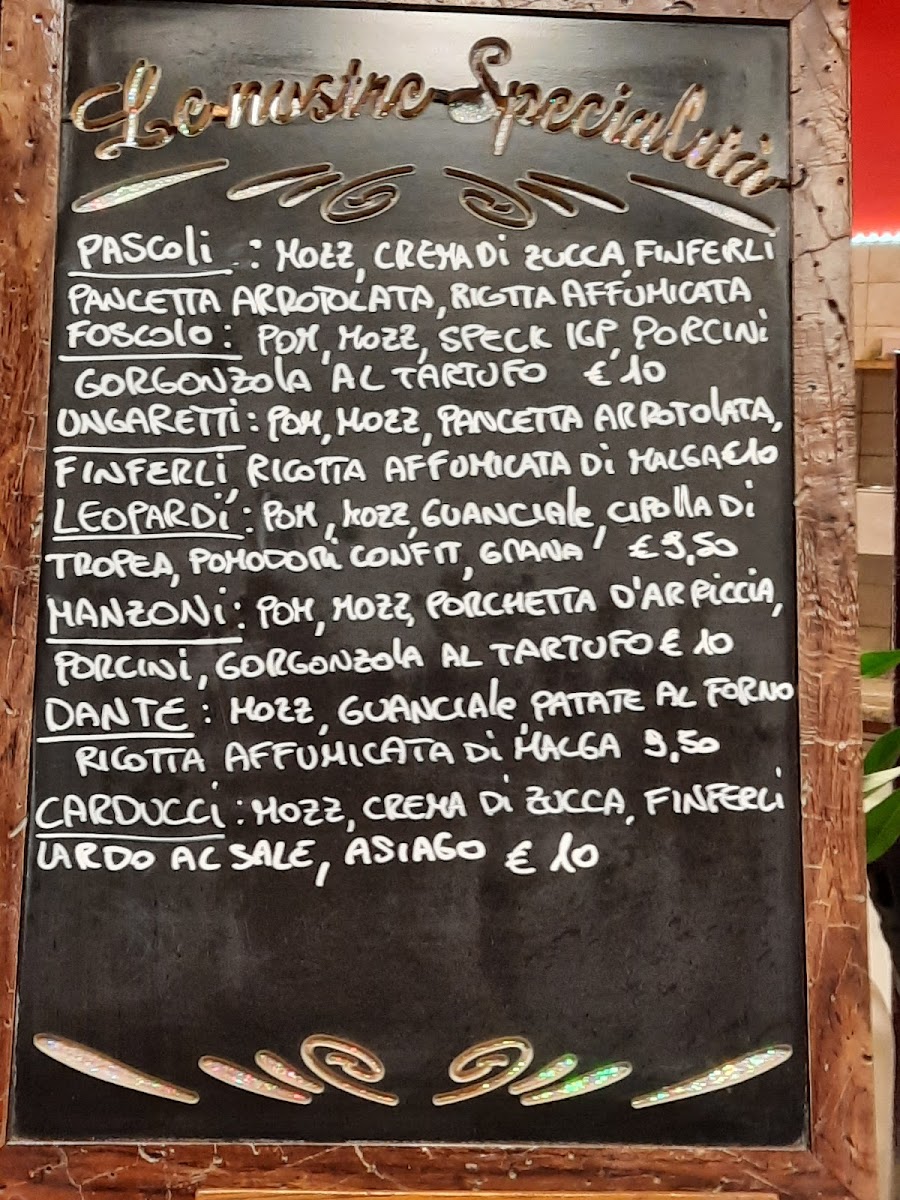 Le nostre Specialità
PASCOLI : MOZZ, CREMA DI ZUCCA, FINFERLI
PANCETTA ARROTOLATA, RICOTTA AFFUMICATA
FOSCOLO : POM, MOZZ, SPECK IGP, PORCINI
GORGONZOLA AL TARTUFO € 10
UNGARETTI : POM, MOZZ, PANCETTA ARROTOLATA,
FINFERLI, RICOTTA AFFUMICATA DI MALGA €10
LEOPARDI : POM, MOZZ, GUANCIALE, CIPOLLA DI
TROPEA, POMODORI CONFIT, GRANA € 9,50
MANZONI : POM, MOZZ, PORCHETTA D'ARRICCIA,
PORCINI, GORGONZOLA AL TARTUFO € 10
DANTE : MOZZ, GUANCIALE, PATATE AL FORNO
RICOTTA AFFUMICATA DI MALGA 9,50
CARDUCCI : MOZZ, CREMA DI ZUCCA, FINFERLI
LARDO AL SALE, ASIAGO € 10